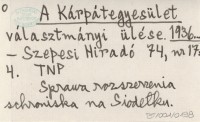 A Kárpátegyesület
választmányi ülése. 1936...
- Szepesi Hiradó 74, nr 17:
4. TNP
Sprawa rozszerzenia
schroniska na Siodełku.